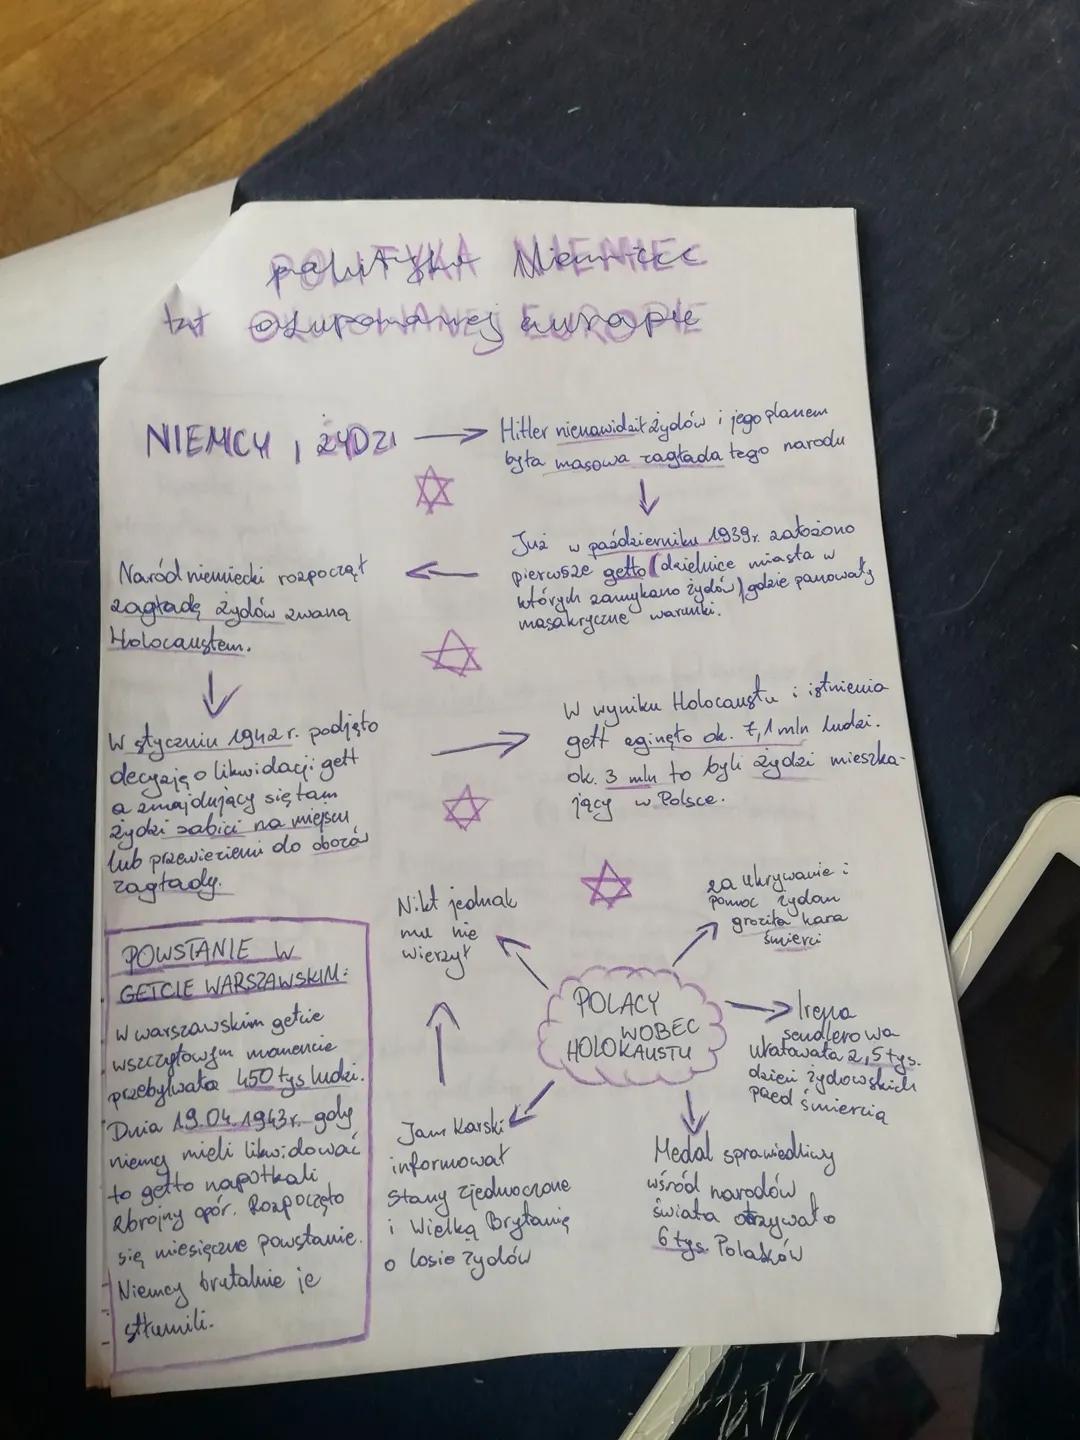 POLITYKA NIEMIEC
polityka Niemiec
OKUPOWANEJ EUROPIE
okupowanej europie
NIEMCY I ŻYDZI
Hitler nienawidził żydów i jego planem
była masowa zagłada tego narodu
Już w październiku 1939r. założono
pierwsze getto (dzielnice miasta w
których zamykano żydów) gdzie panowały
masakryczne warunki.
Naród niemiecki rozpoczął
zagładę żydów zwaną
Holocaustem.
W styczniu 1942 r. podjęto
decyzję o likwidacji gett
a znajdujący się tam
żydzi zabici na miejscu
lub przewiezieni do obozów
zagłady.
W wyniku Holocaustu i istnienia
gett zginęło ok. 7,1 mln ludzi.
ok. 3 mln to byli żydzi mieszka-
jący w Polsce.
POWSTANIE W
GETCIE WARSZAWSKIM:
W warszawskim getcie
w szczytowym momencie
przebywało 450 tys ludzi.
Dnia 19.04.1943r. gdy
niemcy mieli likwidować
to getto napotkali
zbrojny opór. Rozpoczęto
się miesięczne powstanie.
Niemcy brutalnie je
stłumili.
POLACY
WOBEC
HOLOKAUSTU
za ukrywanie i
pomoc żydom
groziła kara
śmierci
Irena
sendlerowa
uratowała 2,5 tys.
dzieci żydowskich
przed śmiercią
Medal sprawiedliwy
wśród narodów
świata otrzymało
6 tys. Polaków
Jan Karski
informował
Stany zjednoczone
i Wielką Brytanię
o losie żydów
Nikt jednak
mu nie
wierzył